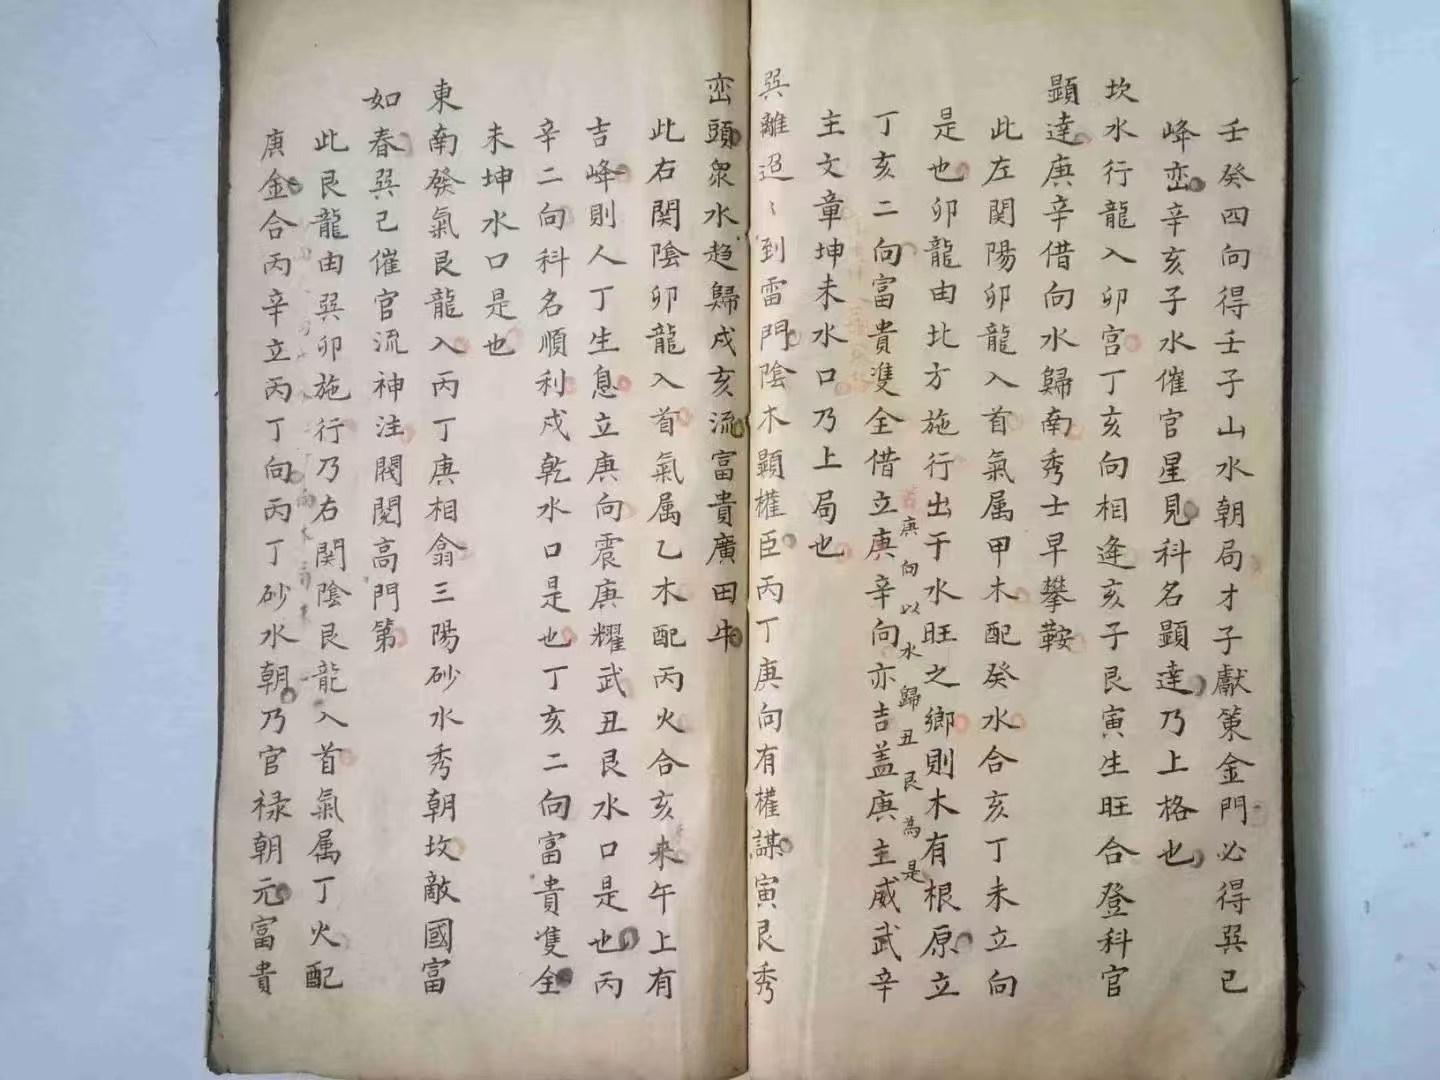 壬癸四向得壬子山水朝局才子獻策金門必得巽已
峰巒辛亥子水催官星見科名顯達乃上格也
坎水行龍入卯宫丁亥向相逢亥子艮寅生旺合登科官
顯達庚辛借向水歸南秀士早攀鞍
此左関陽卯龍入首氣属甲木配癸水合亥丁未立向
是也卯龍由北方施行出于水旺之鄉則木有根原立
若庚向以水歸丑艮為是
丁亥二向富貴雙全借立庚辛向亦吉蓋庚主威武辛
主文章坤未水口乃上局也
巽離迢〻到雷門陰木顯權臣丙丁庚向有權謀寅艮秀
巒頭衆水趋歸戍亥流富貴廣田牛
此右関陰卯龍入首氣属乙木配丙火合亥来午上有
吉峰則人丁生息立庚向震庚耀武丑艮水口是也丙
辛二向科名順利戍乾水口是也丁亥二向富貴雙全
未坤水口是也
東南發氣艮龍入丙丁庚相翕三陽砂水秀朝坟敵國富
如春巽已催官流神注閥閱高門第
此艮龍由巽卯施行乃右関陰艮龍入首氣属丁火配
庚金合丙辛立丙丁向丙丁砂水朝乃官禄朝元富貴